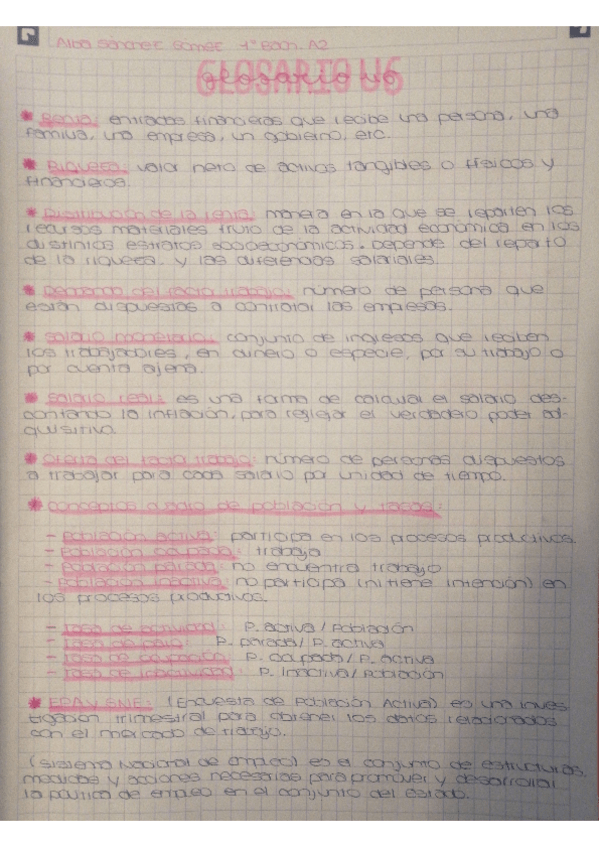 Alba Sánchez Gómez 1º Bach. A2
GLOSARIO U6
* Renta: entradas financieras que recibe una persona, una
familia, una empresa, un gobierno, etc.
* Riqueza: valor neto de activos tangibles o físicos y
financieros.
* Distribución de la renta: manera en la que se reparten los
recursos materiales fruto de la actividad económica en los
distintos estratos socioeconómicos. Depende del reparto
de la riqueza y las diferencias salariales.
* Demanda del factor trabajo: número de persona que
están dispuestos a contratar las empresas.
* Salario monetario: conjunto de ingresos que reciben
los trabajadores, en dinero o especie, por su trabajo o
por cuenta ajena.
* Salario real: es una forma de calcular el salario des-
contando la inflación, para reflejar el verdadero poder ad-
quisitivo.
* Oferta del factor trabajo: número de personas dispuestas
a trabajar para cada salario por unidad de tiempo.
* Conceptos de población y tasas:
- Población activa: participa en los procesos productivos.
- Población ocupada: trabaja
- Población parada: no encuentra trabajo
- Población inactiva: no participa (ni tiene intención) en
los procesos productivos.
- Tasa de actividad: P. activa / Población
- Tasa de paro: P. parada / P. activa
- Tasa de ocupación: P. ocupada / P. Activa
- Tasa de inactividad: P. Inactiva / Población
* EPA y SNE: (Encuesta de Población Activa) es una inves
tigación trimestral para obtener los datos relacionados
con el mercado de trabajo.
(Sistema Nacional de Empleo) es el conjunto de estructuras,
medidas y acciones necesarias para promover y desarrollar
la política de empleo en el conjunto del estado.